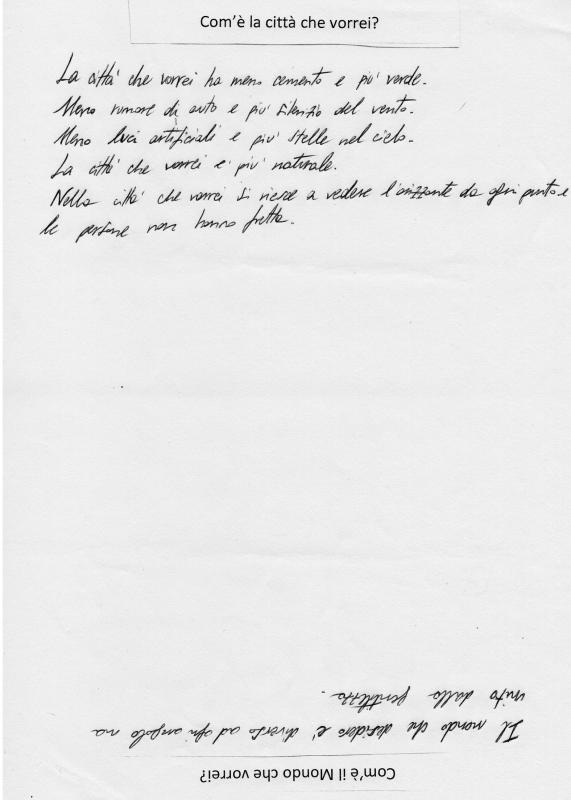 Com'è la città che vorrei?
La citta' che vorrei ha meno cemento e piu' verde.
Meno rumore di auto e piu' silenzio del vento.
Meno luci artificiali e piu' stelle nel cielo.
La citta' che vorrei e' piu' naturale.
Nella citta' che vorrei si riesce a vedere l'orizzonte da ogni punto e
le persone non hanno fretta.
Com'è il Mondo che vorrei?
Il mondo che desidero e' diverso ad ogni angolo ma
unito dalla